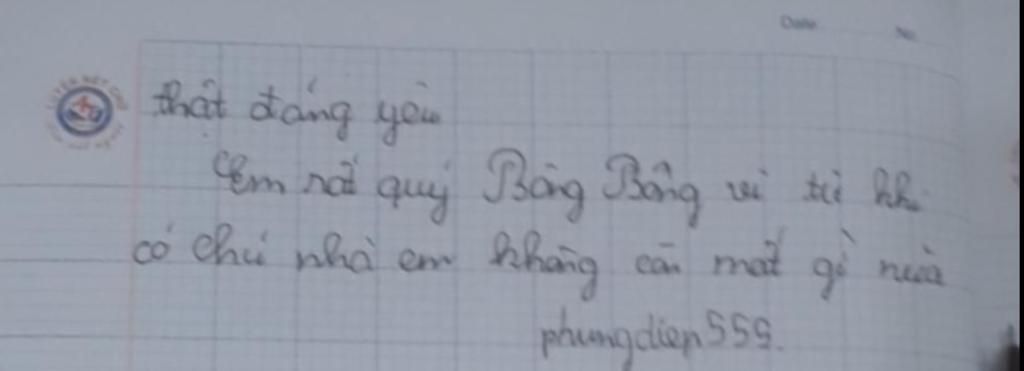 Date No
thật đáng yêu
Em rất quý Bông Bông vì từ khi
có chú nhà em không còn mất gì nữa
phungdiep555.